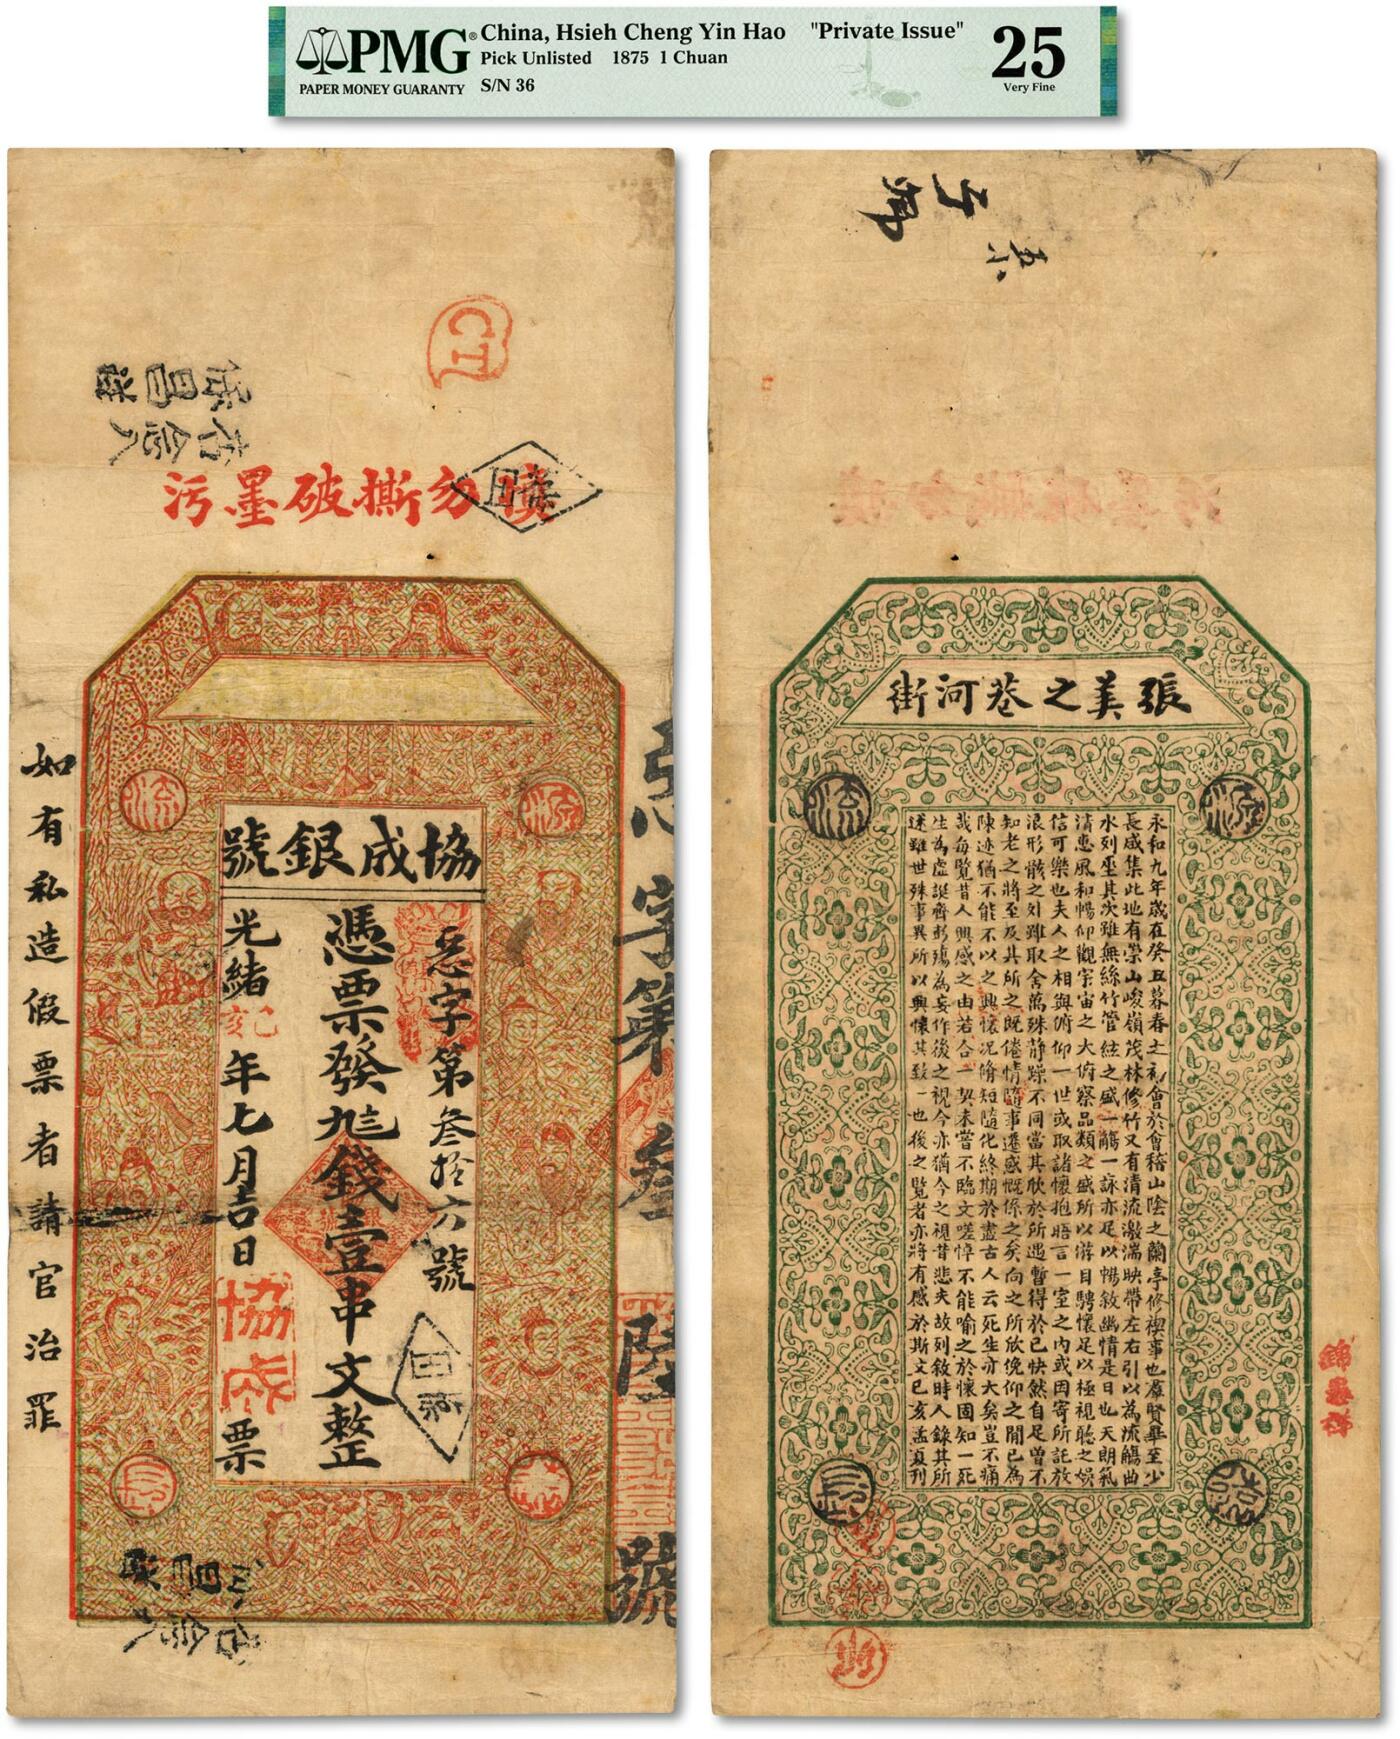 PMG® PAPER MONEY GUARANTY
China, Hsieh Cheng Yin Hao "Private Issue"
Pick Unlisted 1875 1 Chuan
S/N 36
25
Very Fine
CT
勿撕破墨污
協成銀號
忌字第叁拾六號
憑票發九三錢壹串文整
光緒己亥年七月吉日
協成
票
如有私造假票者請官治罪
陸
號
張美之巷河街
永和九年歲在癸丑暮春之初會於會稽山陰之蘭亭修禊事也羣賢畢至少
長咸集此地有崇山峻嶺茂林修竹又有清流激湍映帶左右引以為流觴曲
水列坐其次雖無絲竹管絃之盛一觴一詠亦足以暢敘幽情是日也天朗氣
清惠風和暢仰觀宇宙之大俯察品類之盛所以遊目騁懷足以極視聽之娛
信可樂也夫人之相與俯仰一世或取諸懷抱晤言一室之內或因寄所託放
浪形骸之外雖取舍萬殊靜躁不同當其欣於所遇暫得於己快然自足曾不
知老之將至及其所之既倦情隨事遷感慨係之矣向之所欣俛仰之間已為
陳迹猶不能不以之興懷況脩短隨化終期於盡古人云死生亦大矣豈不痛
哉每覽昔人興感之由若合一契未嘗不臨文嗟悼不能喻之於懷固知一死
生為虛誕齊彭殤為妄作後之視今亦猶今之視昔悲夫故列敘時人錄其所
述雖世殊事異所以興懷其致一也後之覽者亦將有感於斯文己亥孟夏刊